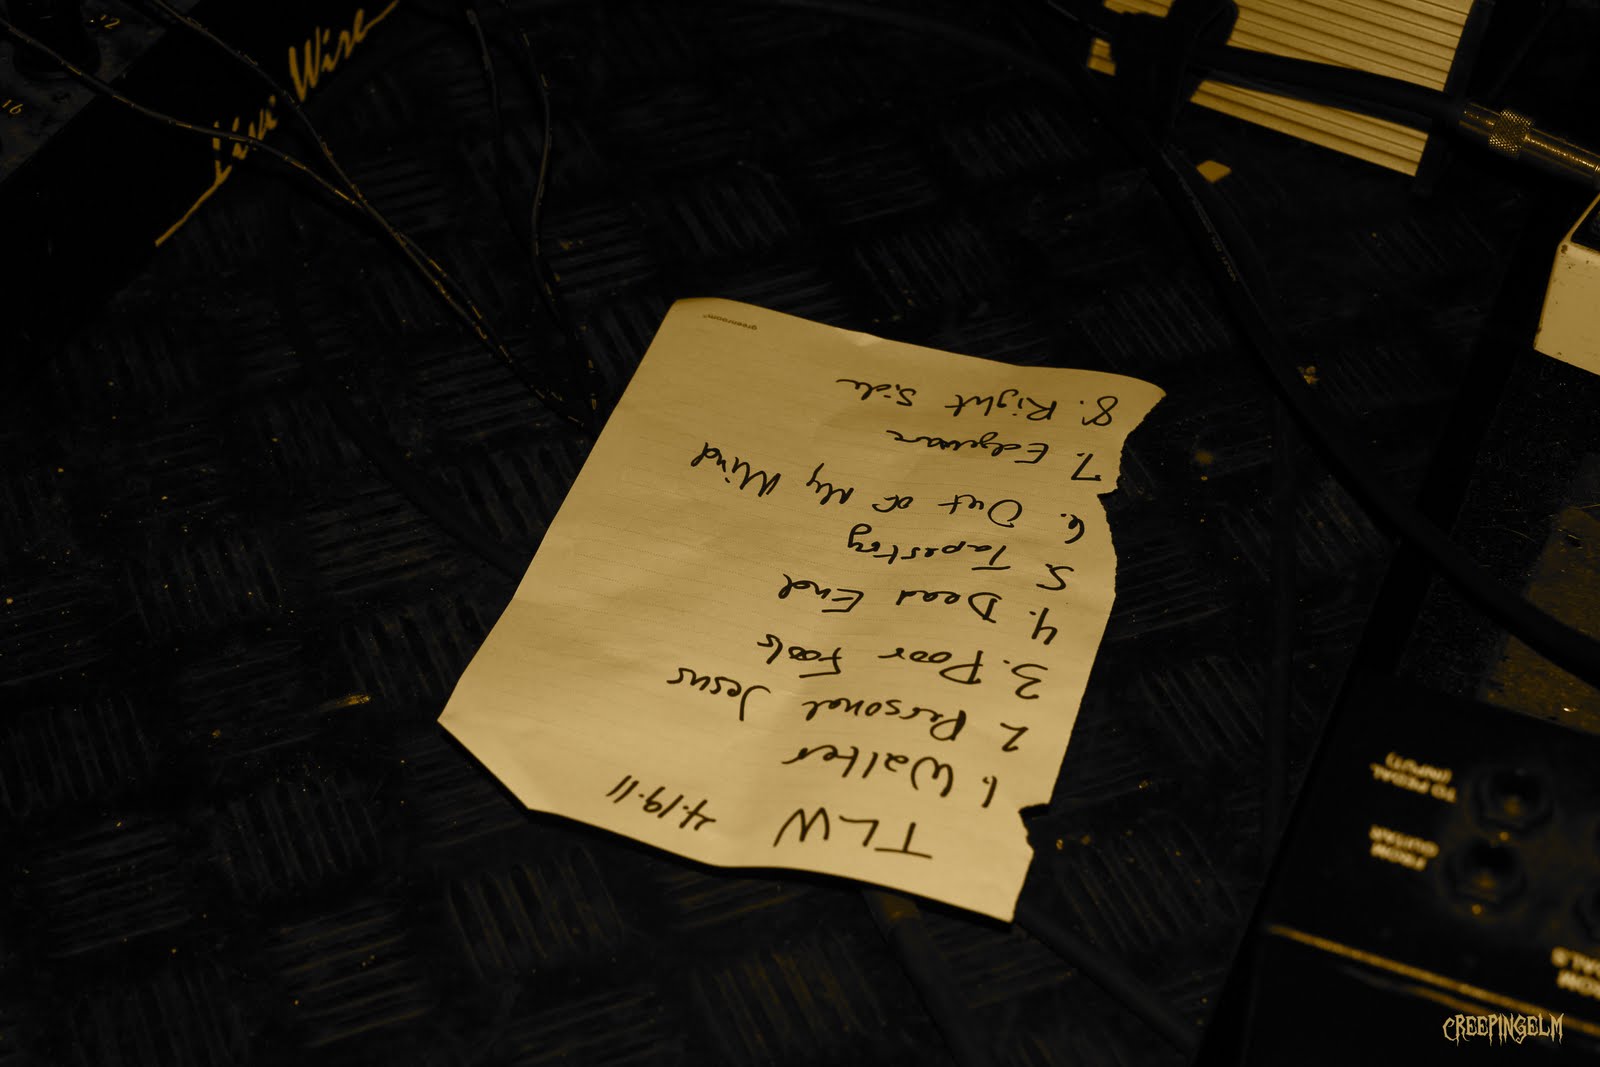 TLW 4.19.11
1. Walter
2. Personal Jesus
3. Poor Fools
4. Dead End
5. Tapestry
6. Out of My Mind
7. Edgeware
8. Right Side
greenroom
Livi Wire
12
16
TO PEDAL
(INPUT)
FROM
GUITAR
CREEPINGELM